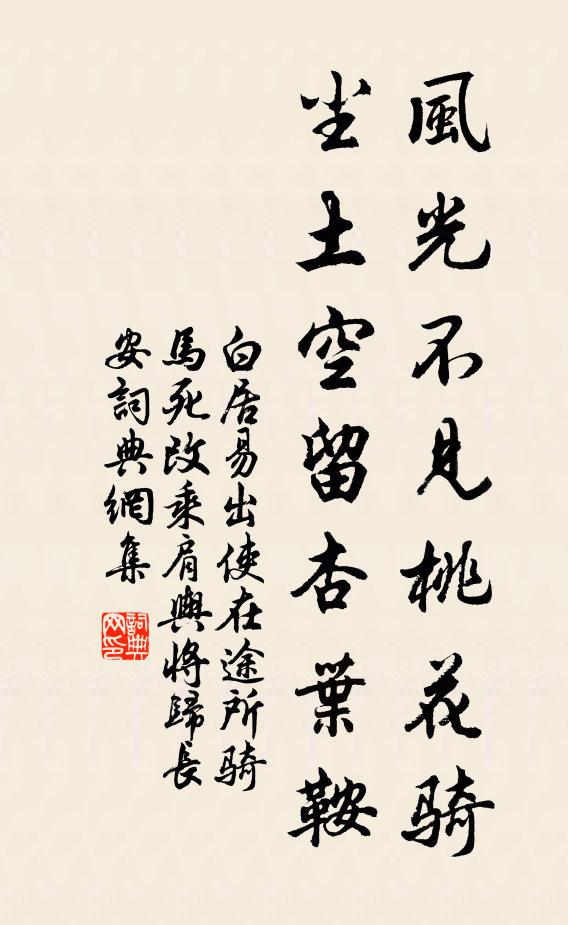 風光不見桃花骑
尘土空留杏葉鞍
白居易出使在途所骑
馬死改乘肩輿將歸長
安詞典網集
詞典
网印